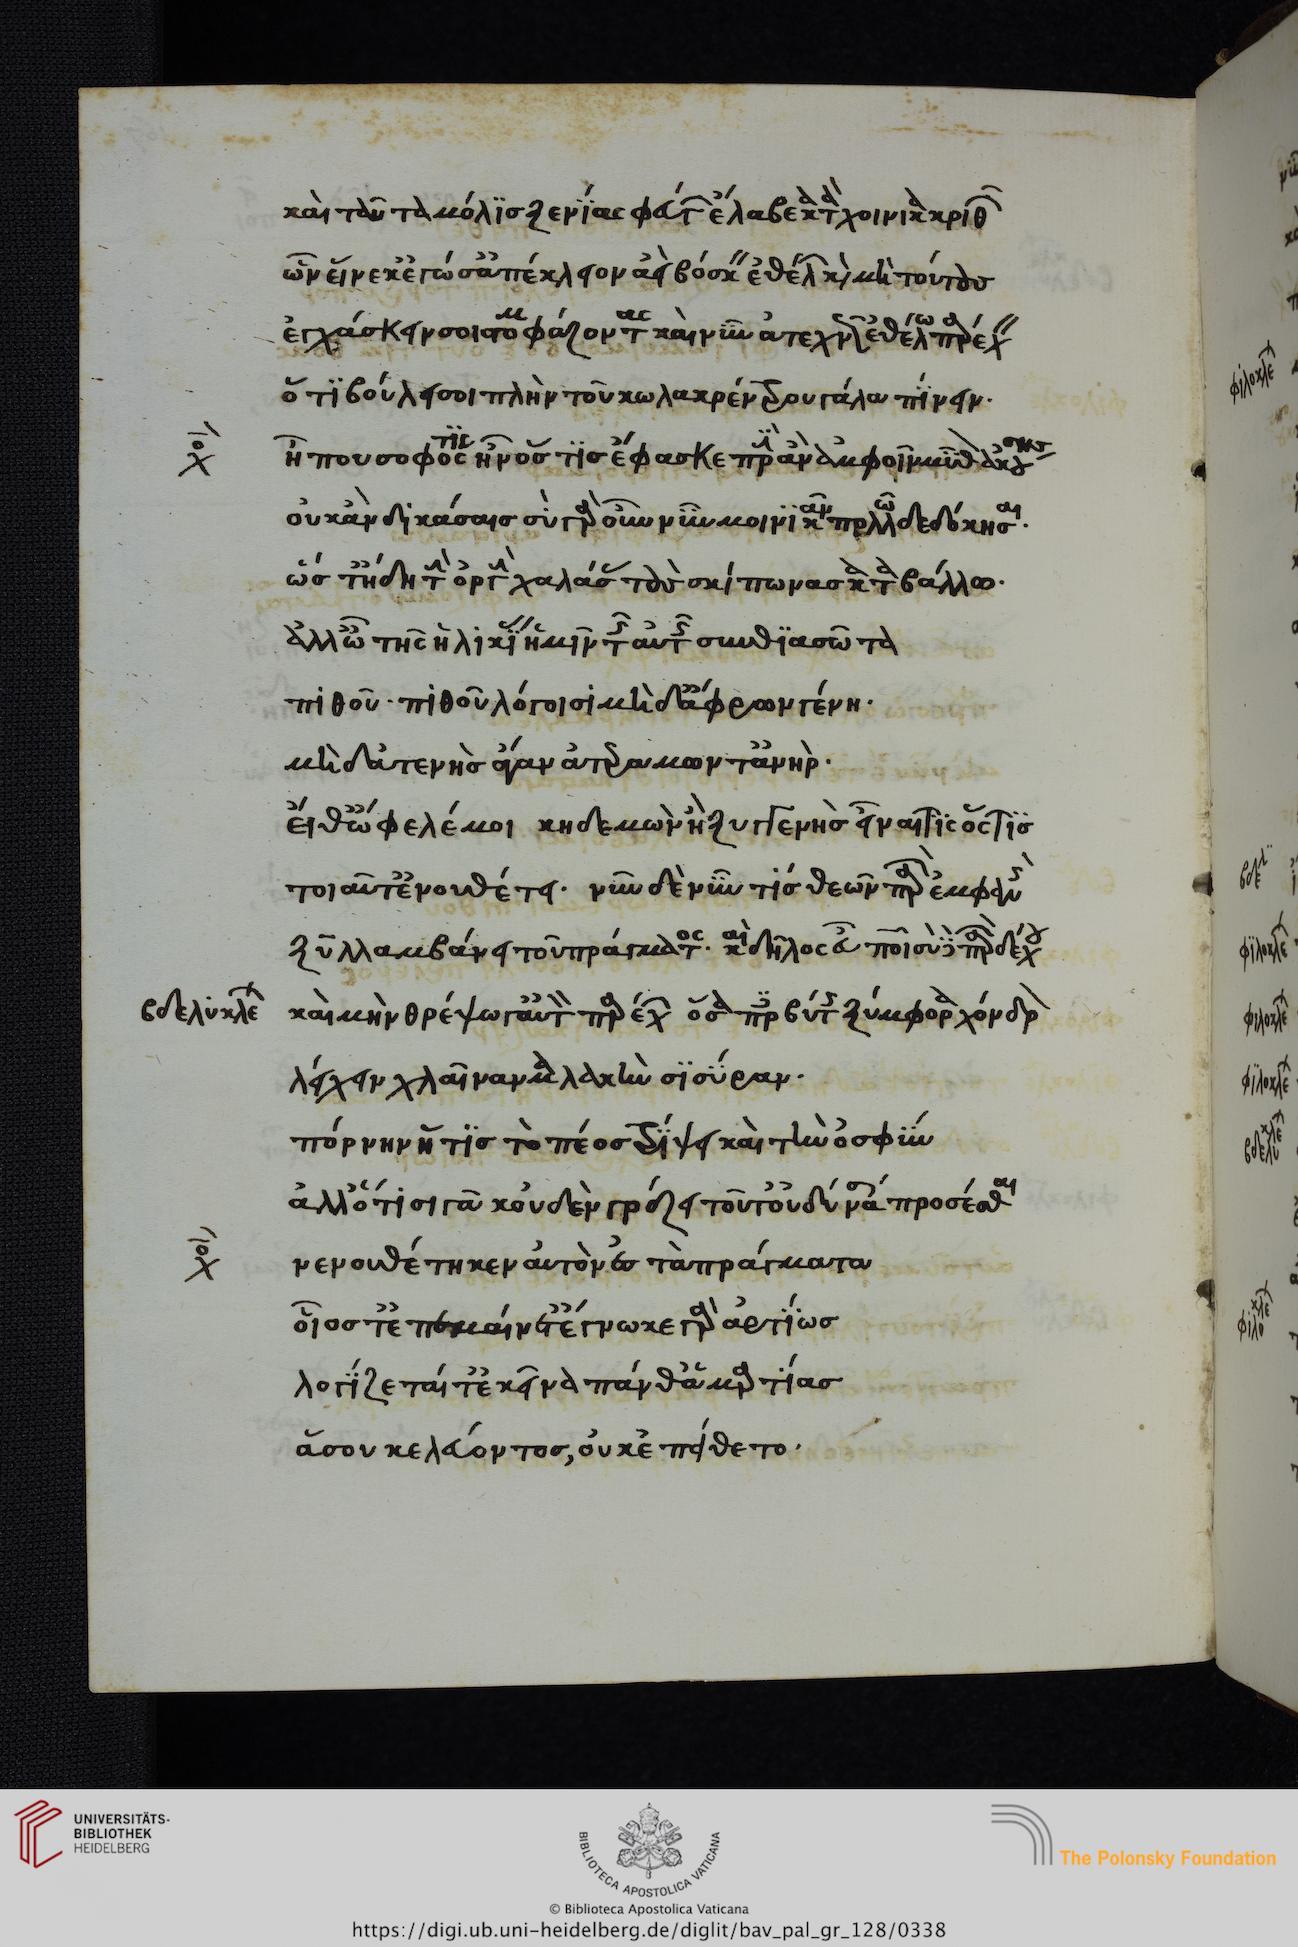 καὶ ταῦτα μόλις ξενίας φεύγων ἔλαβες κατὰ χοίνικα κριθ
ῶν εἵνεκ' ἐγώ σ' ἀπέκλειον ἀεὶ βόσκειν ἐθέλων καὶ μὴ τούτους
ἐγχάσκειν σοι στομφάζοντας καὶ νῦν ἀτεχνῶς ἐθέλω παρέχειν
ὅ τι βούλει σοι πλὴν τοῦ κωλακρέν του γάλα πίνειν.
χο ἦ που σοφὸς ἦν ὅστις ἔφασκε πρὶν ἂν ἀμφοῖν μῦθον ἀκούσης
οὐκ ἂν δικάσαις σὺ γὰρ οὖν νῦν μοι νικᾶν πολλῶ δεδόκησαι.
ὥστ' ἤδη τὴν ὀργὴν χαλάσας τοὺς σκίπωνας καταβάλλω.
ἀλλ' ὦ τῆς ἡλικίας ἡμῖν τῆς αὐτῆς συνθιασῶτα
πιθοῦ· πιθοῦ λόγοισι μὴ δ' ἄφρων γένη.
μὴ δ' ἀτενὴς ἄγαν ἀτεράμων τ' ἀνήρ.
εἴθ' ὤφελέ μοι κηδεμὼν ἢ ξυγγενὴς εἶναι τὶς ὅστις
τοιαῦτ' ἐνουθέτει. νῦν δὲ νῦν τίς θεῶν παρὼν ἐμφανὴς
ξυλλαμβάνει τοῦ πράγματος. καὶ δῆλος εὖ ποιῶν σὺ παρὼν δέχου
βδελυκλέ καὶ μὴν θρέψω γ' αὐτὸν παρέχων ὅσα πρεσβύτη ξύμφορα χόνδρον
λείχειν χλαῖναν μαλακὴν σισύραν.
πόρνην ἥτις τὸ πέος τρίψει καὶ τὴν ὀσφῦν
ἀλλ' ὅτι σιγᾶ κοὐδὲν γρύζει τοῦτο γ' οὐ δύναται προσέσθαι
χο νενουθέτηκεν αὐτὸν ἐς τὰ πράγματα
οἷος τ' ἐπεμαίνετ' ἔγνωκε γὰρ ἀρτίως
λογίζεταί τ' ἐκεῖνα πάνθ' ἁμαρτίας
ἃ σοῦ κελεύοντος, οὐκ ἐπείθετο.
UNIVERSITÄTS-
BIBLIOTHEK
HEIDELBERG
BIBLIOTECA APOSTOLICA VATICANA
© Biblioteca Apostolica Vaticana
The Polonsky Foundation
https://digi.ub.uni-heidelberg.de/diglit/bav_pal_gr_128/0338